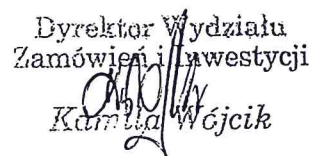 Dyrektor Wydziału
Zamówień i Inwestycji
Kamila Wójcik